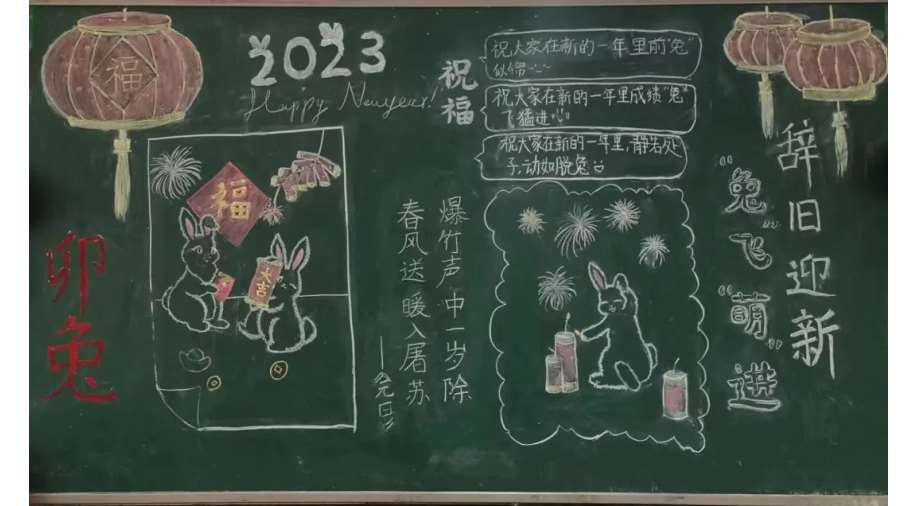 福
2023
Happy New year!
福
大吉
卯兔
祝福
祝大家在新的一年里前"兔"
似锦
祝大家在新的一年里成绩"兔"
飞猛进
祝大家在新的一年里,静若处
子,动如脱兔
爆竹声中一岁除
春风送暖入屠苏
——《元日》
辞旧迎新
"兔"飞"萌"进